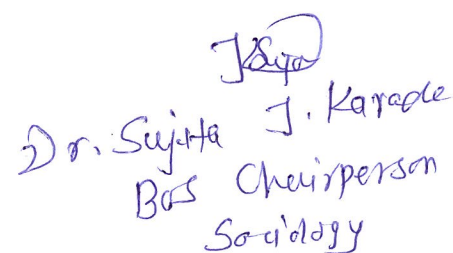 Dr. Sujata J. Karade
BOS Chairperson
Sociology